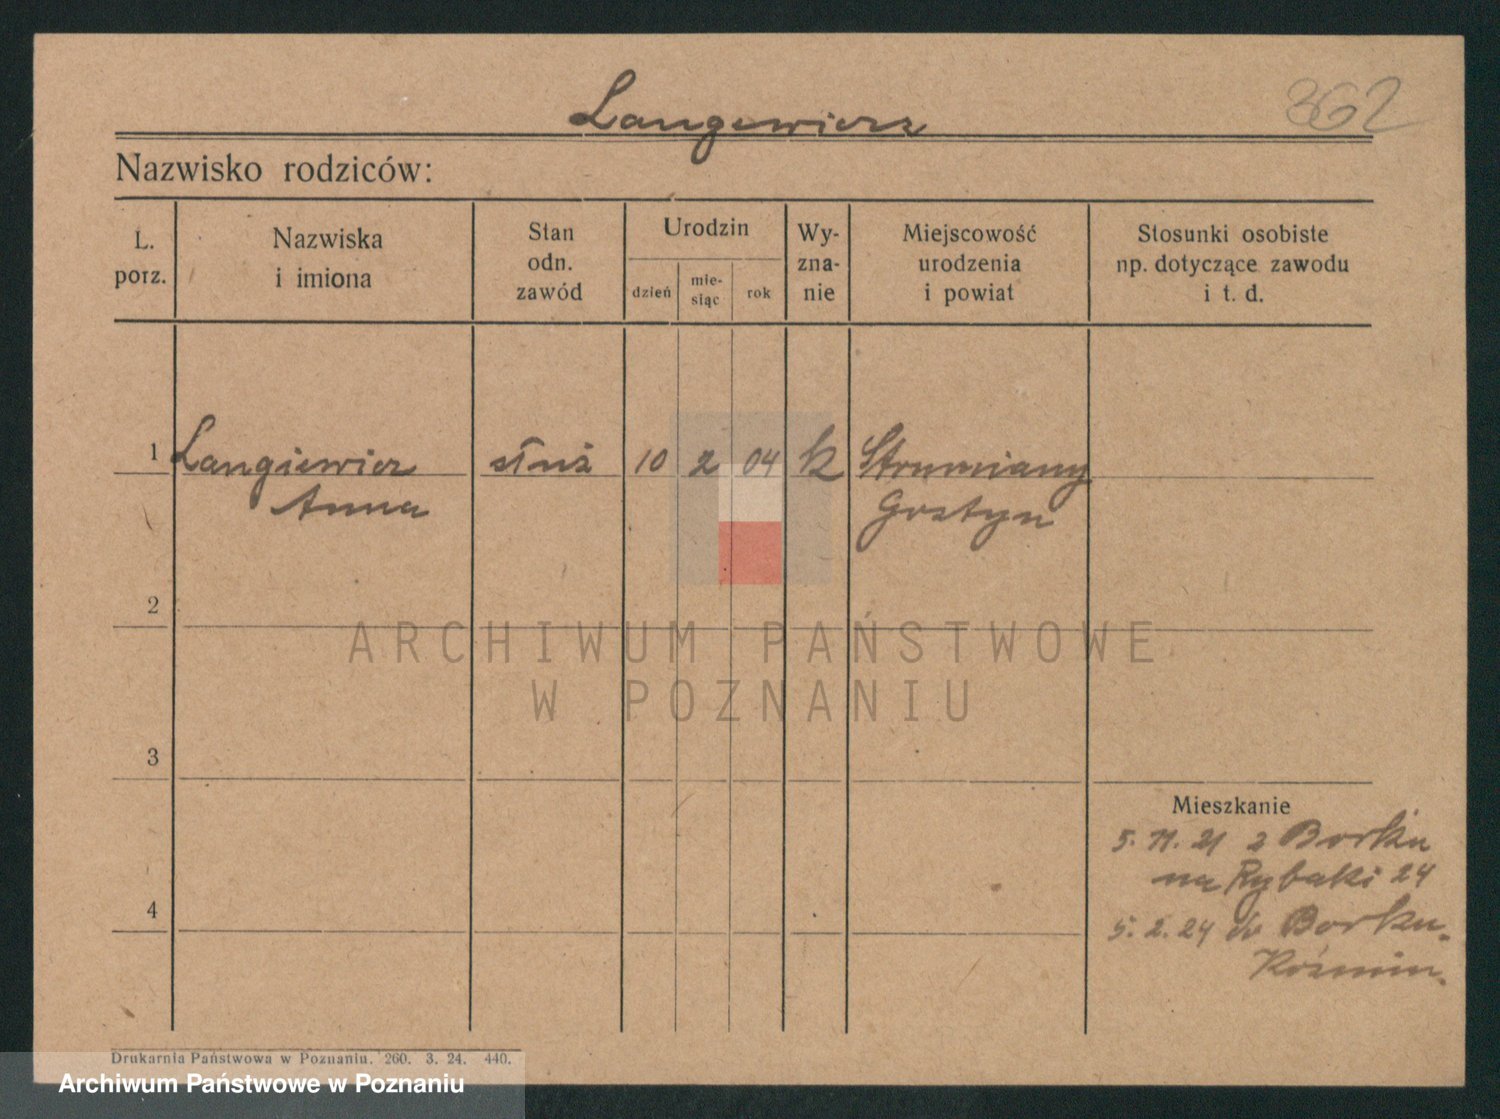 Langewicz
362
Nazwisko rodziców:
L. porz.
Nazwiska i imiona
Stan odn. zawód
Urodzin
dzień
mie-
siąc
rok
Wy-
zna-
nie
Miejscowość
urodzenia
i powiat
Stosunki osobiste
np. dotyczące zawodu
i t. d.
1 Langiewicz służ 10 2 04 k Strumiany
Anna Gostyn
2
ARCHIWUM PAŃSTWOWE
W POZNANIU
3
Mieszkanie
5. 11. 21 z Borku
na Rybaki 24
4
5. 2. 24 do Borku.
Koźmin.
Drukarnia Państwowa w Poznaniu. 260. 3. 24. 440.
Archiwum Państwowe w Poznaniu